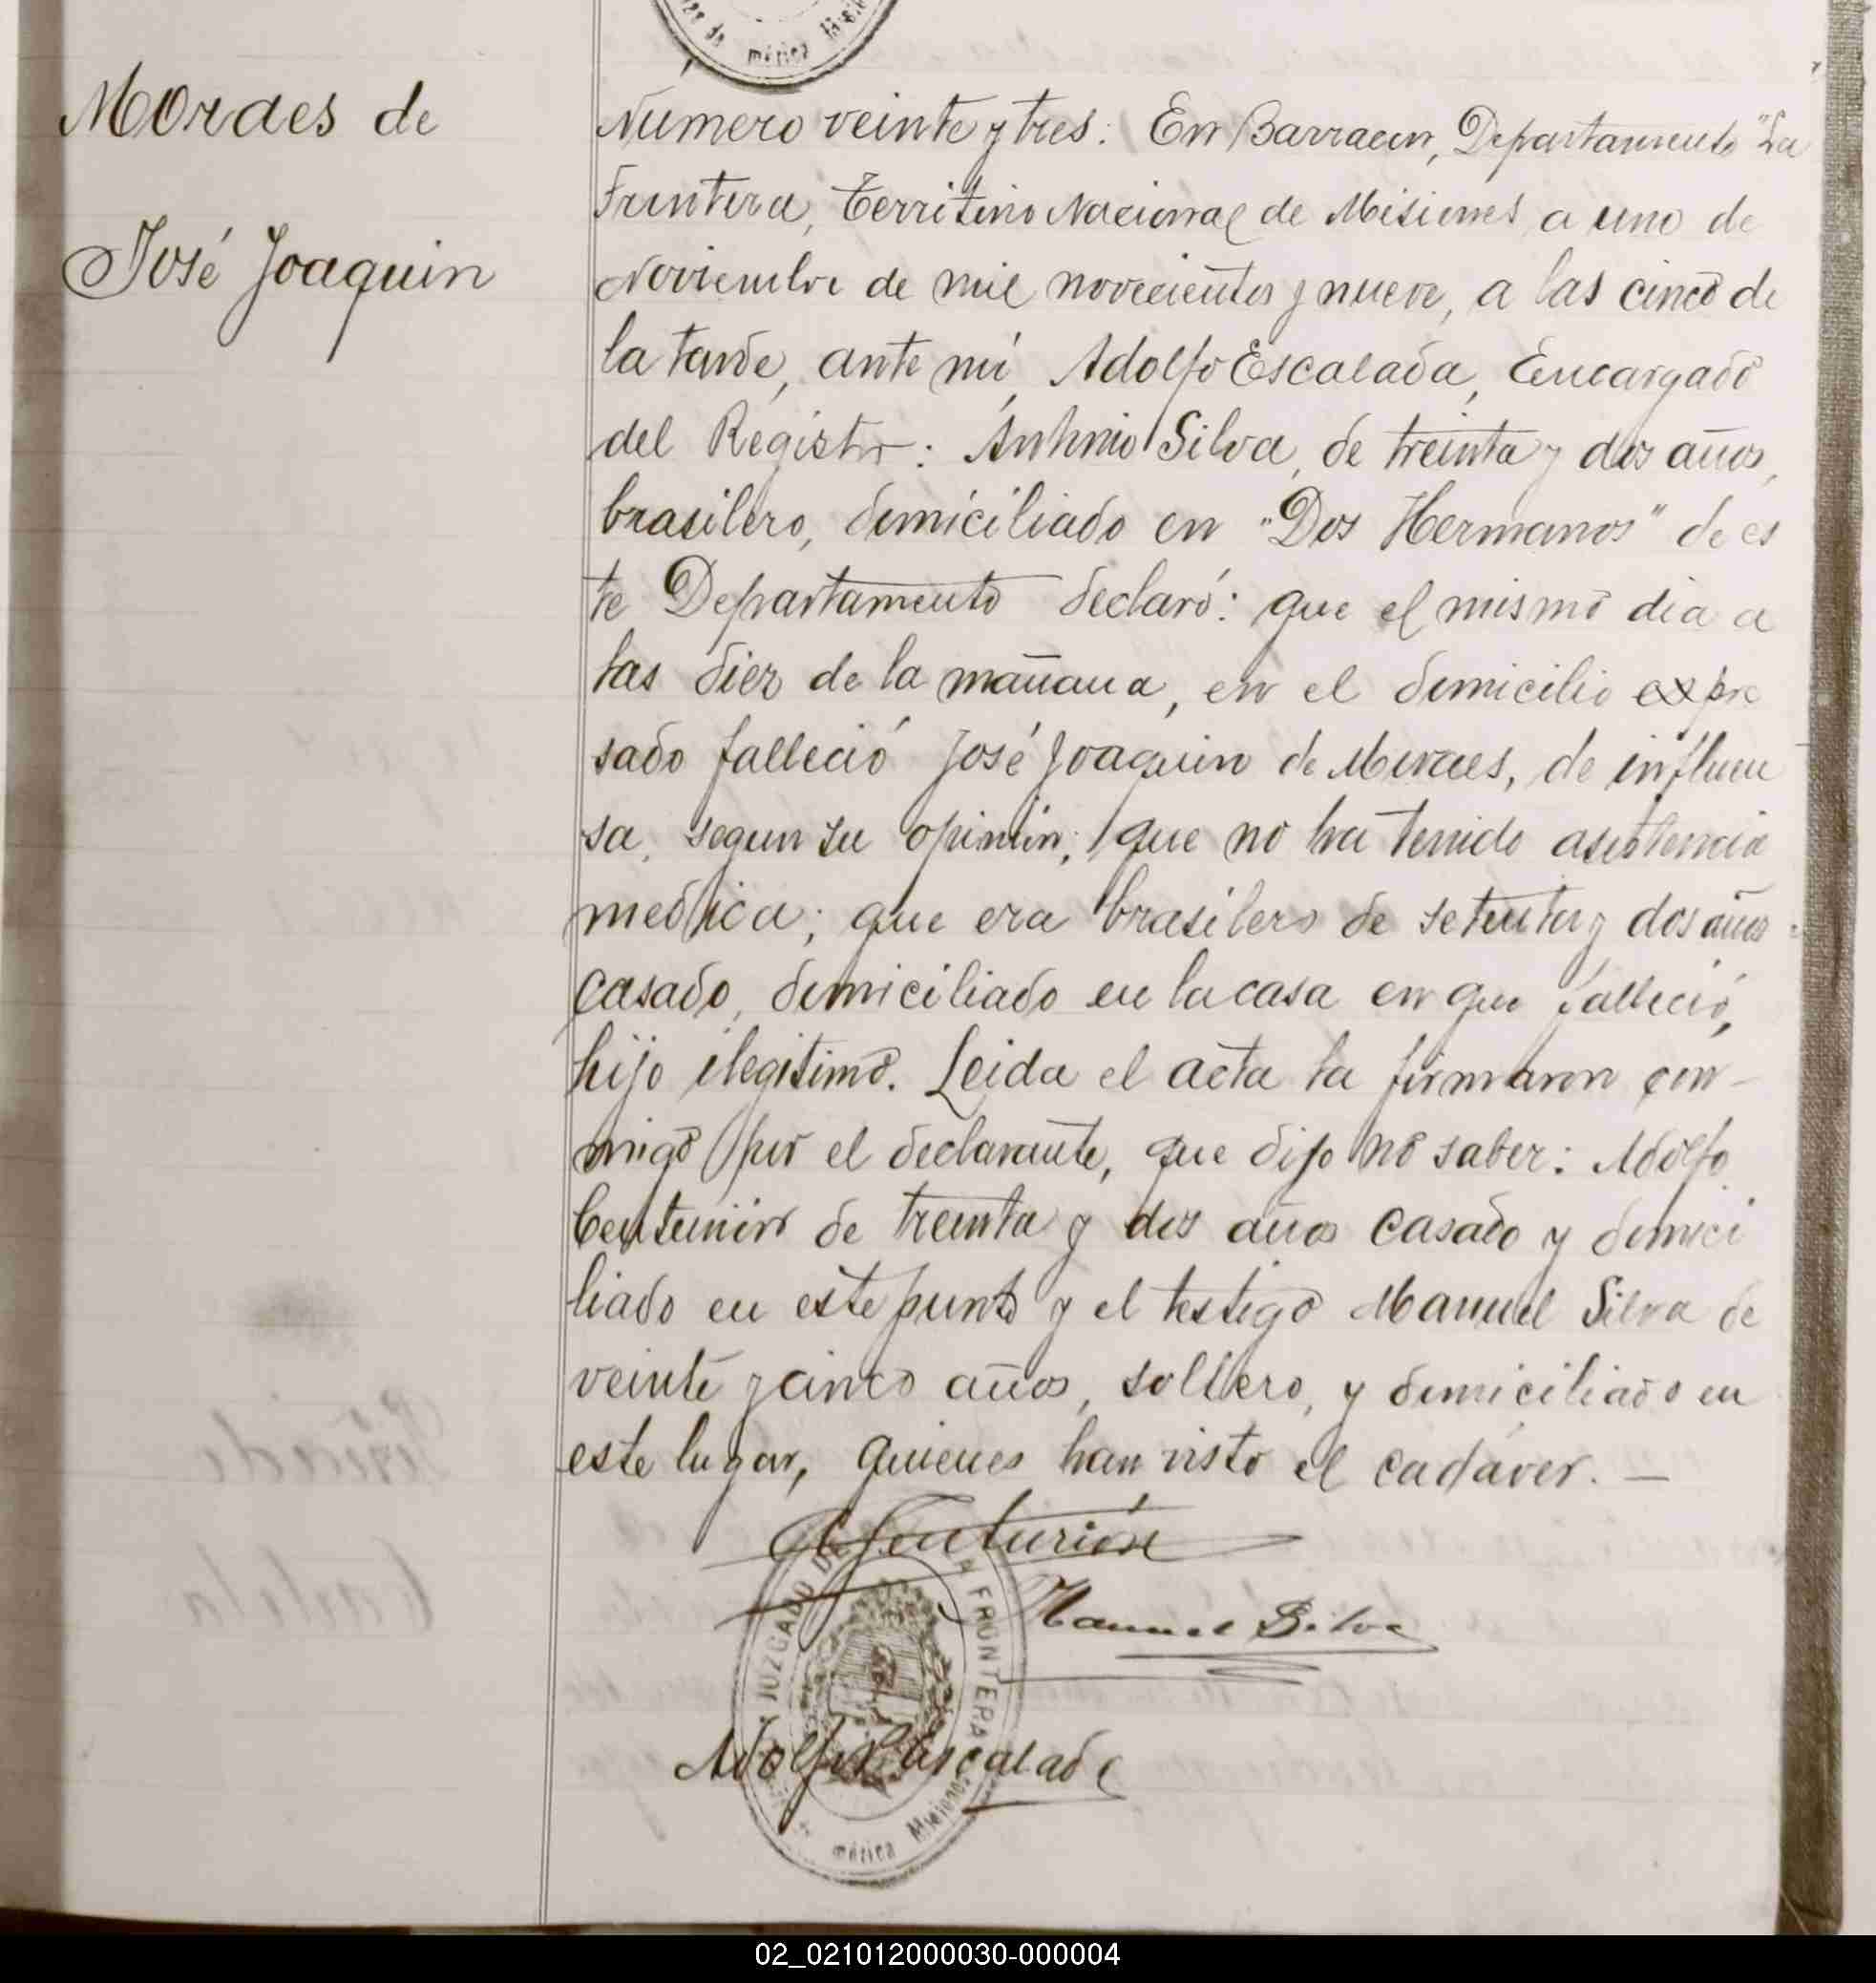 Moraes de
José Joaquin
mérica
Número veinte y tres. En Barracon, Departamento "La
Frontera, Territorio Nacional de Misiones a uno de
Noviembre de mil novecientos y nueve, a las cinco de
la tarde, ante mi, Adolfo Escalada, Encargado
del Registro: Antonio Silva, de treinta y dos años,
brasilero, domiciliado en "Dos Hermanos" de es
te Departamento declaró: que el mismo dia a
las diez de la mañana, en el domicilio expre
sado falleció José Joaquin de Moraes, de influen
sa, segun su opinion; que no ha tenido asistencia
medica; que era brasilero de setenta y dos años
casado, domiciliado en la casa en que falleció,
hijo ilegitimo. Leida el acta la firmaron con-
migo por el declarante, que dijo no saber: Adolfo
Centurión de treinta y dos años casado y domici
liado en este punto y el testigo Manuel Silva de
veinte y cinco años, soltero, y domiciliado en
este lugar, quienes han visto el cadáver. —
A Centurión
Manuel Silva
JUZGADO DE FRONTERA
Adolfo Escalada
mérica Misiones
02_021012000030-000004